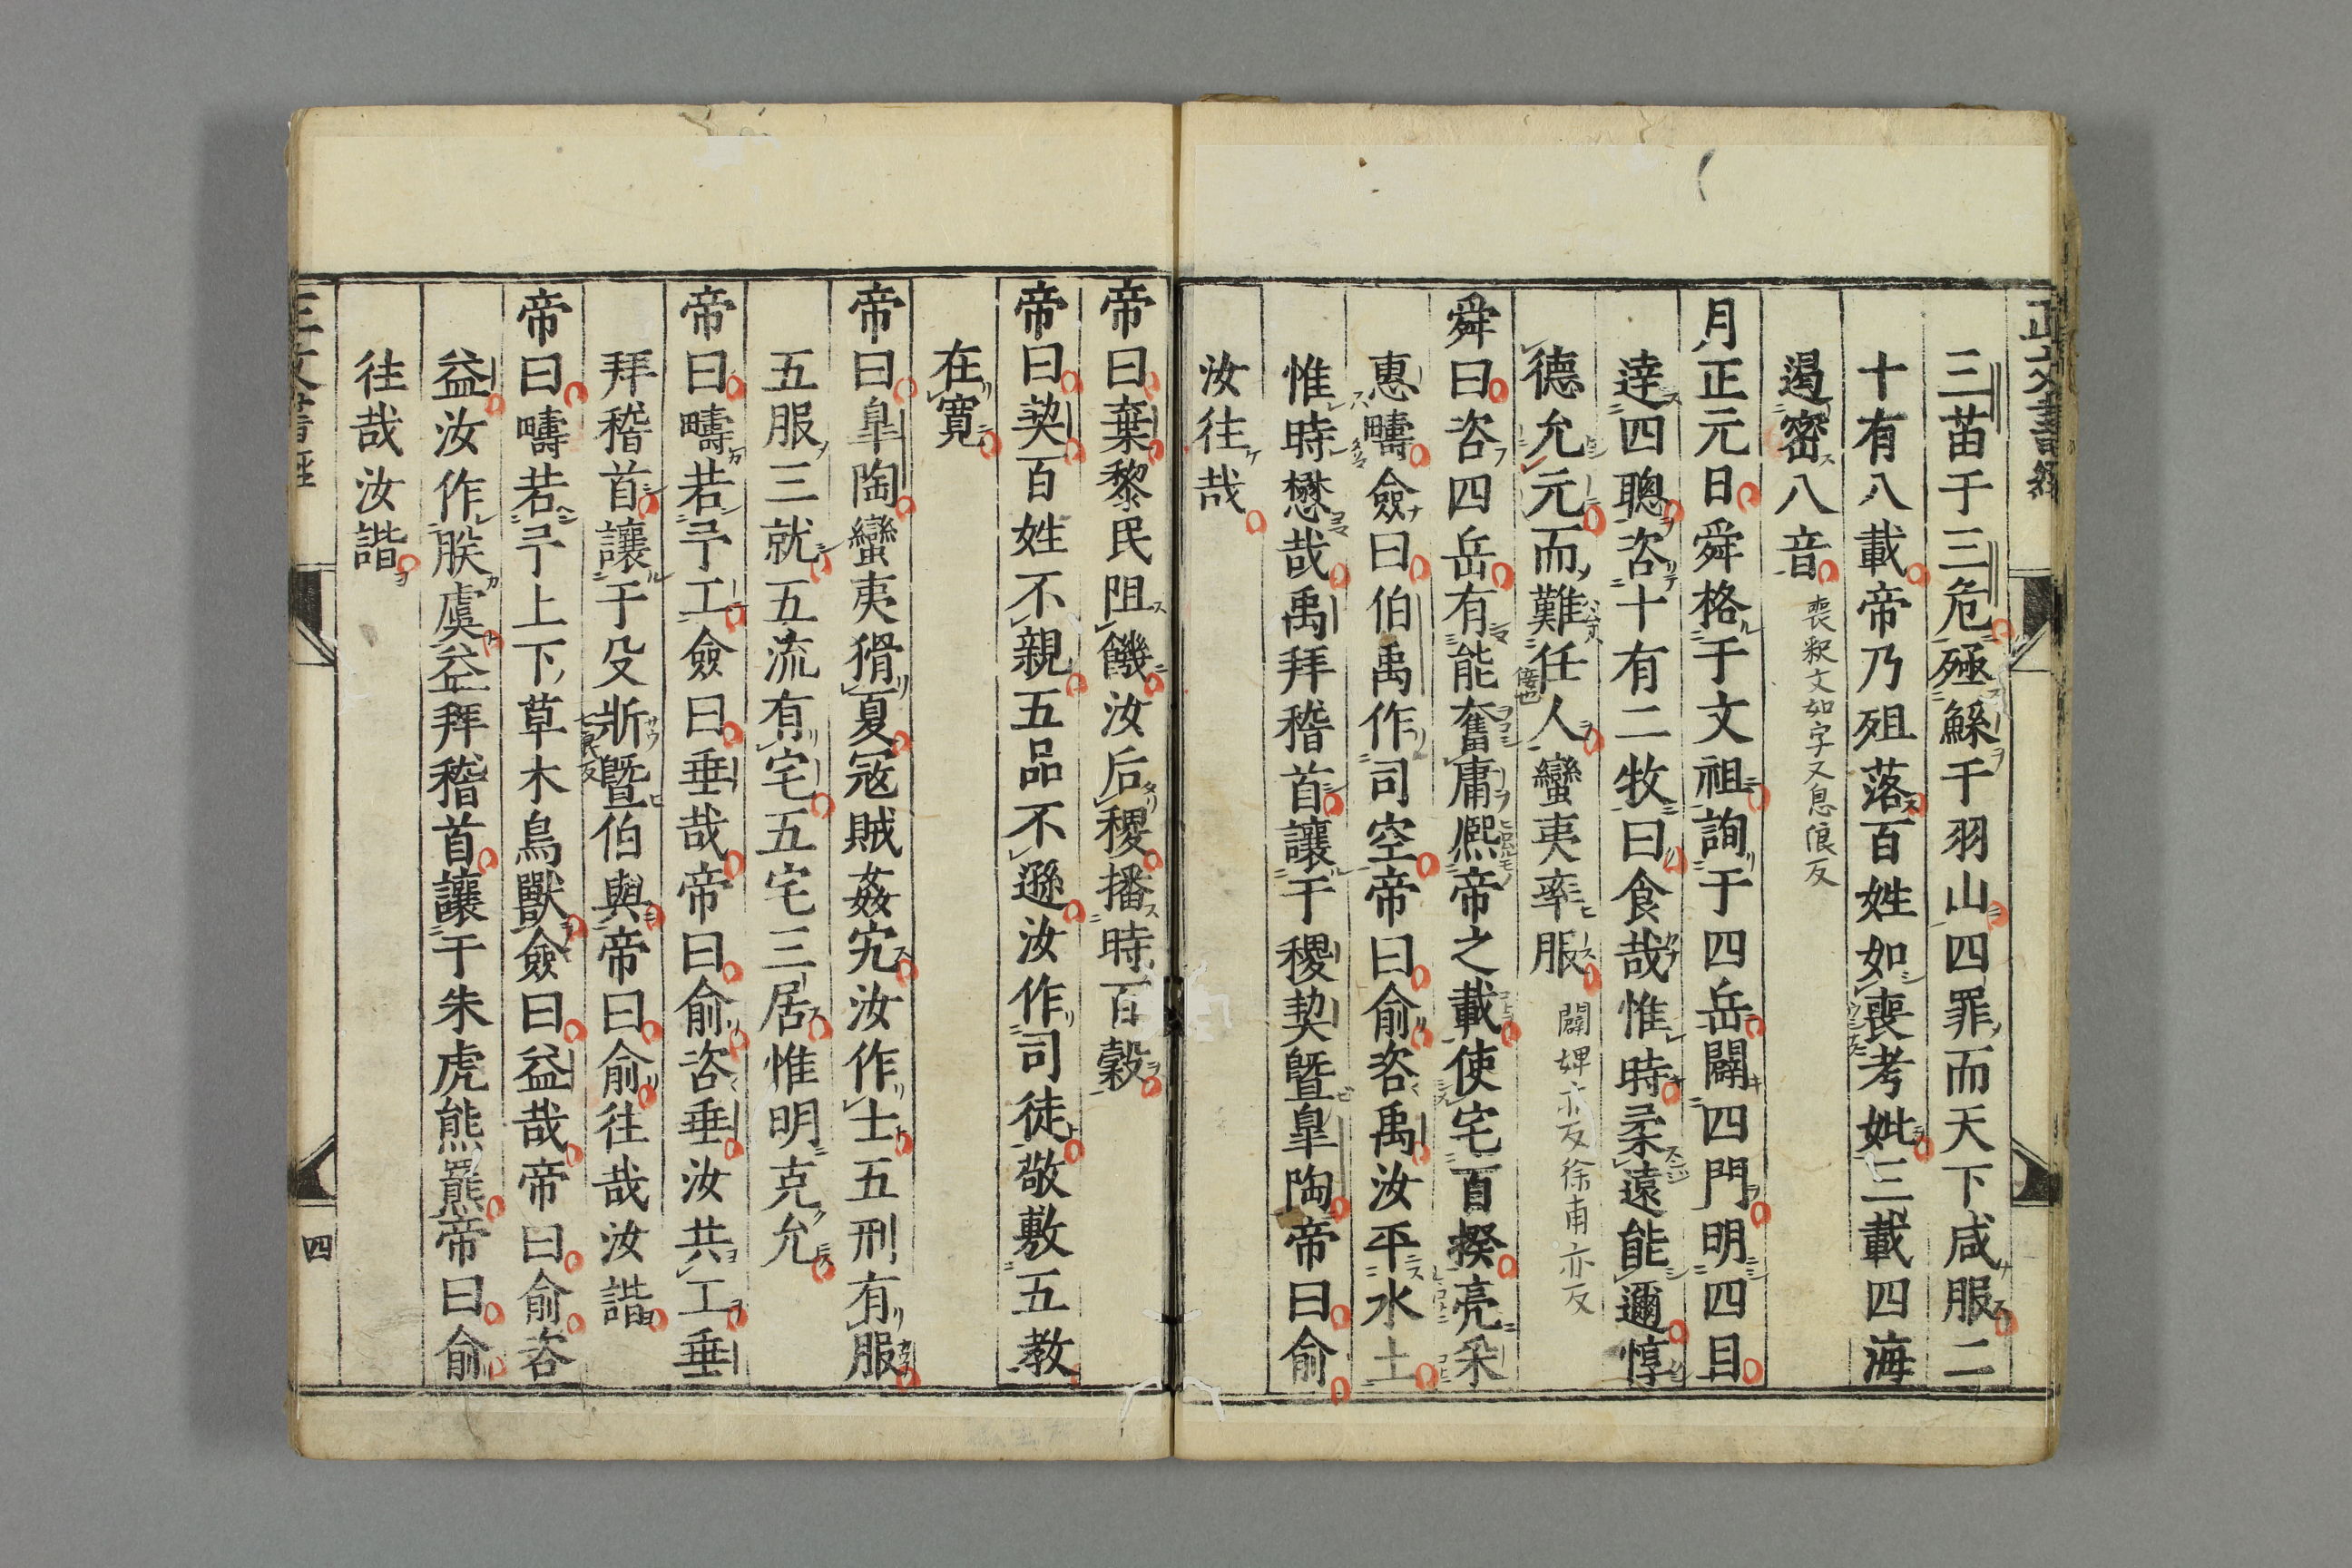 正文書經
三苗于三危殛鯀于羽山四罪而天下咸服二
十有八載帝乃殂落百姓如喪考妣三載四海
遏密八音
喪釈文如字又息浪反
月正元日舜格于文祖詢于四岳闢四門明四目
達四聰咨十有二牧曰食哉惟時柔遠能邇惇
德允元而難任人蠻夷率服
佞也
闢婢亦反徐甫亦反
舜曰咨四岳有能奮庸熈帝之載使宅百揆亮采
惠疇僉曰伯禹作司空帝曰俞咨禹汝平水土
惟時懋哉禹拜稽首讓于稷契曁皐陶帝曰俞
汝往哉
帝曰棄黎民阻饑汝后稷播時百穀
帝曰契百姓不親五品不遜汝作司徒敬敷五教
在寬
帝曰皐陶蠻夷猾夏寇賊姦宄汝作士五刑有服
五服三就五流有宅五宅三居惟明克允
帝曰疇若予工僉曰垂哉帝曰俞咨垂汝共工垂
拜稽首讓于殳斨曁伯與帝曰俞往哉汝諧
帝曰疇若予上下草木鳥獸僉曰益哉帝曰俞咨
益汝作朕虞益拜稽首讓于朱虎熊羆帝曰俞
往哉汝諧
正文書經
四